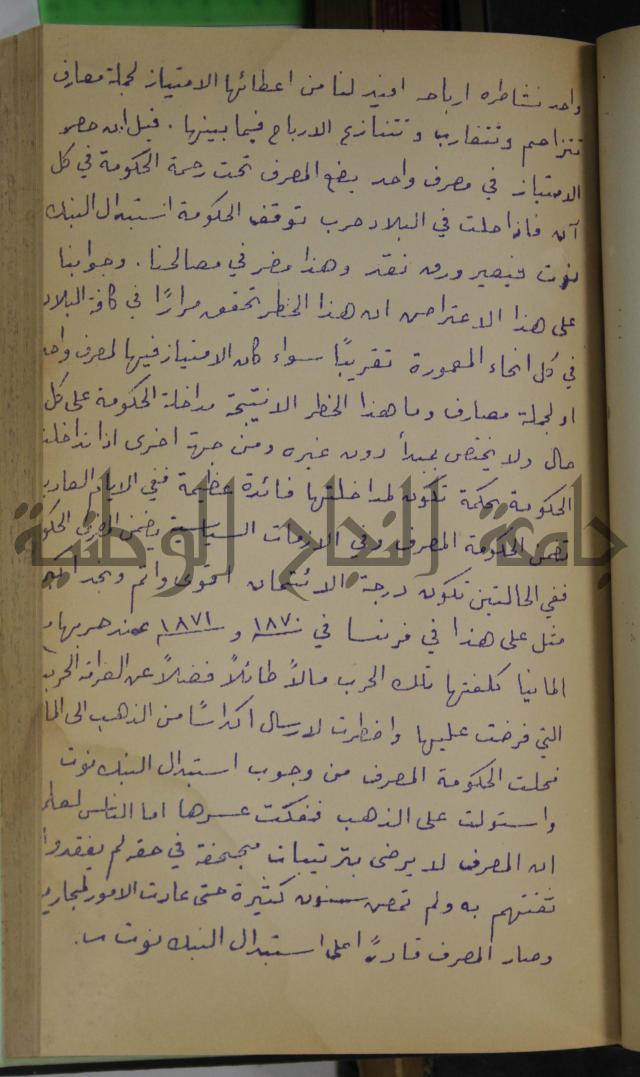 واحد نشاطره ارباحه افيد لنا من اعطائها الامتياز لجملة مصارف
تتزاحم وتتضارب وتتنازع الارباح فيما بينها . قيل ان حصر
الامتياز في مصرف واحد يضع المصرف تحت رحمة الحكومة في كل
آن فاذا حلت في البلاد حرب توقف الحكومة استبدال البنك
نوت فيصير ورق نقد وهذا مضر في مصالحنا . وجوابنا
على هذا الاعتراض ان هذا الخطر تحقق مرارًا في كافة البلاد
في كل انحاء المعمورة تقريبًا سواء كان الامتياز فيها لمصرف واحد
او لجملة مصارف وما هذا الخطر الا نتيجة مداخلة الحكومة على كل
حال ولا يختص بمبدأ دون غيره ومن جهة اخرى اذا تداخلت
الحكومة بحكمة تكون لمداخلتها فائدة عظيمة ففي الايام العادية
تضمن الحكومة المصرف وفي الازمات السياسية يضمن المصرف الحكو
ففي الحالتين تكون درجة الائتمان اقوى واتم ونجد
مثل على هذا في فرنسا في ١٨٧٠ و ١٨٧١ عند حربها
المانيا كلفتها تلك الحرب مالاً طائلاً فضلاً عن الغرامة الحربية
التي فرضت عليها واضطرت لارسال اكداسًا من الذهب الى الما
فحلت الحكومة المصرف من وجوب استبدال البنك نوت
واستولت على الذهب ففكت عسرها اما الناس لعلم
ان المصرف لا يرضى بترتيبات مجحفة في حقه لم يفقدوا
ثقتهم به ولم تمض سنون كثيرة حتى عادت الامور لمجاريها
وصار المصرف قادرًا على استبدال البنك نوت
جامعة النجاح الوطنية